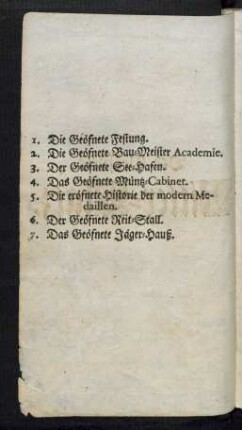 1. Die Geöfnete Festung.
2. Die Geöfnete Bau-Meister Academie.
3. Der Geöfnete See-Hafen.
4. Das Geöfnete Müntz-Cabinet.
5. Die eröfnete Historie der modern Me-
daillen.
6. Der Geöfnete Reit-Stall.
7. Das Geöfnete Jäger-Hauß.